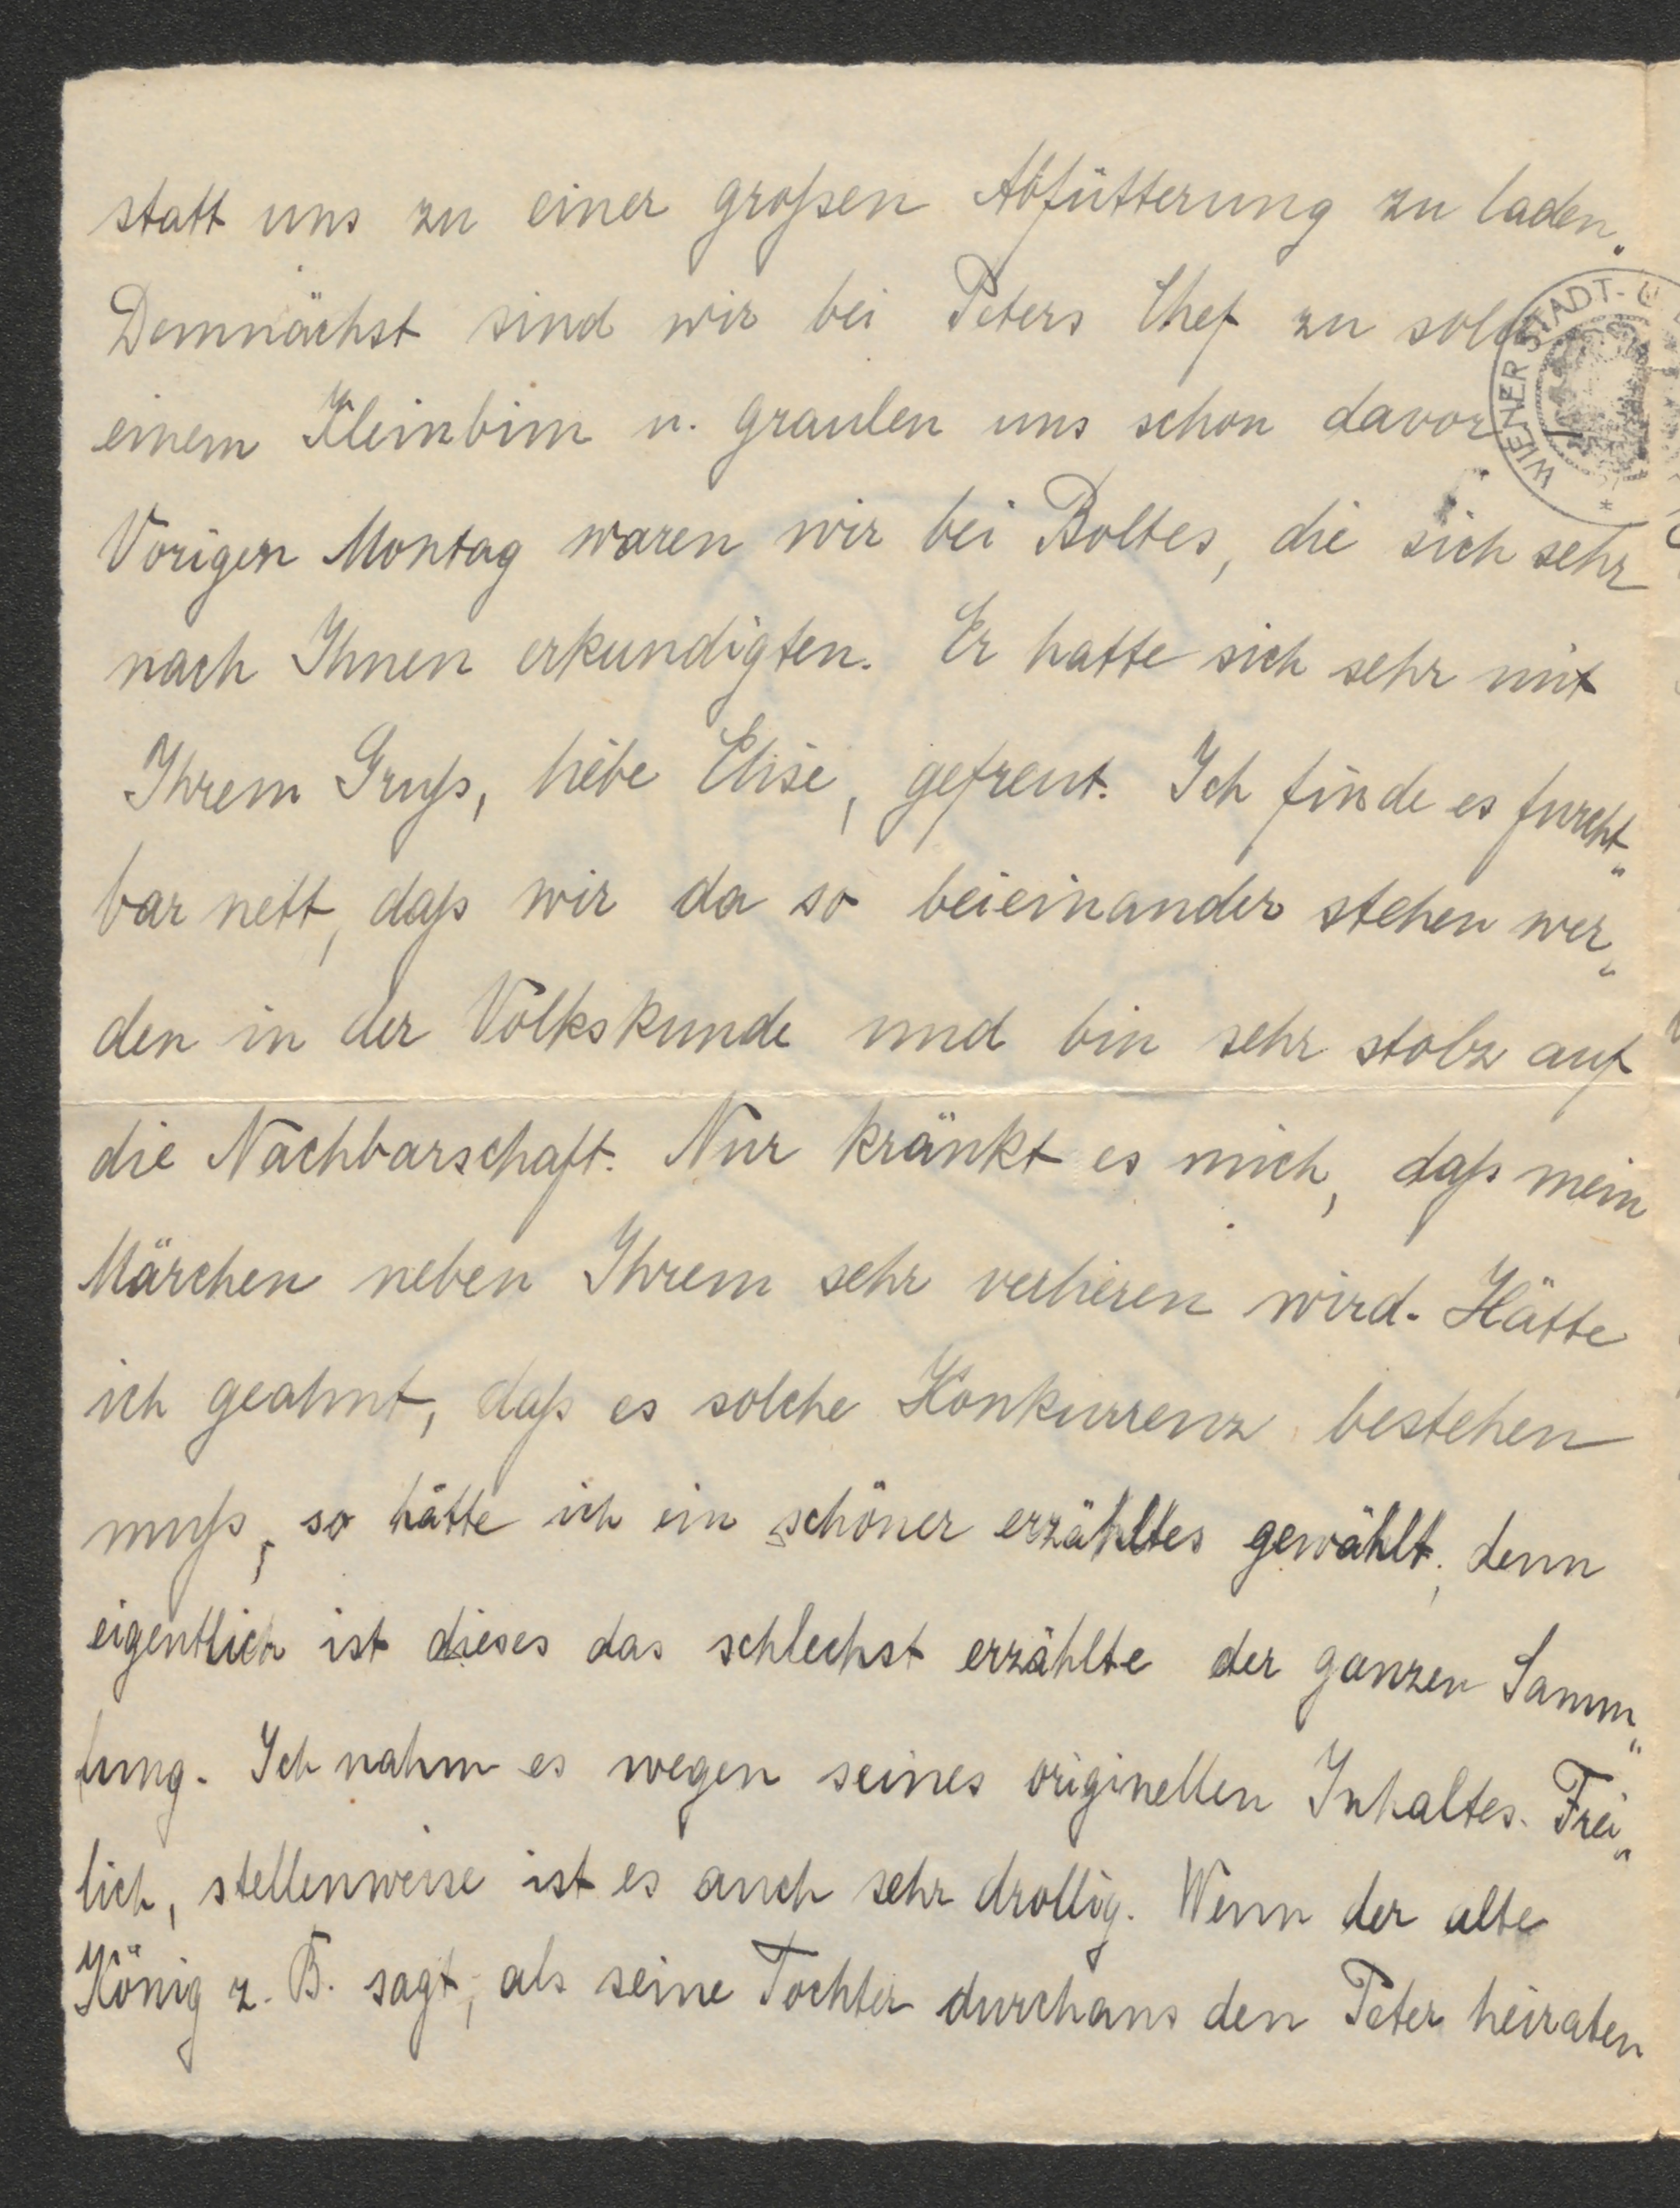 statt uns zu einer großen Abfütterung zu laden.
Demnächst sind wir bei Peters Chef zu solch
einem Kleinbim u. graulen uns schon davor.
Vorigen Montag waren wir bei Boltes, die sich sehr
nach Ihnen erkundigten. Er hatte sich sehr mit
Ihrem Gruß, liebe Elise, gefreut. Ich finde es furcht„
bar nett, daß wir da so beieinander stehen wer„
den in der Volkskunde und bin sehr stolz auf
die Nachbarschaft. Nur kränkt es mich, daß mein
Märchen neben Ihrem sehr verlieren wird. Hätte
ich geahnt, daß es solche Konkurrenz bestehen
muß, so hätte ich ein schöner erzähltes gewählt, denn
eigentlich ist dieses das schlechst erzählte der ganzen Samm„
lung. Ich nahm es wegen seines originellen Inhaltes. Frei„
lich, stellenweise ist es auch sehr drollig. Wenn der alte
König z. B. sagt, als seine Tochter durchaus den Peter heiraten
WIENER STADT-